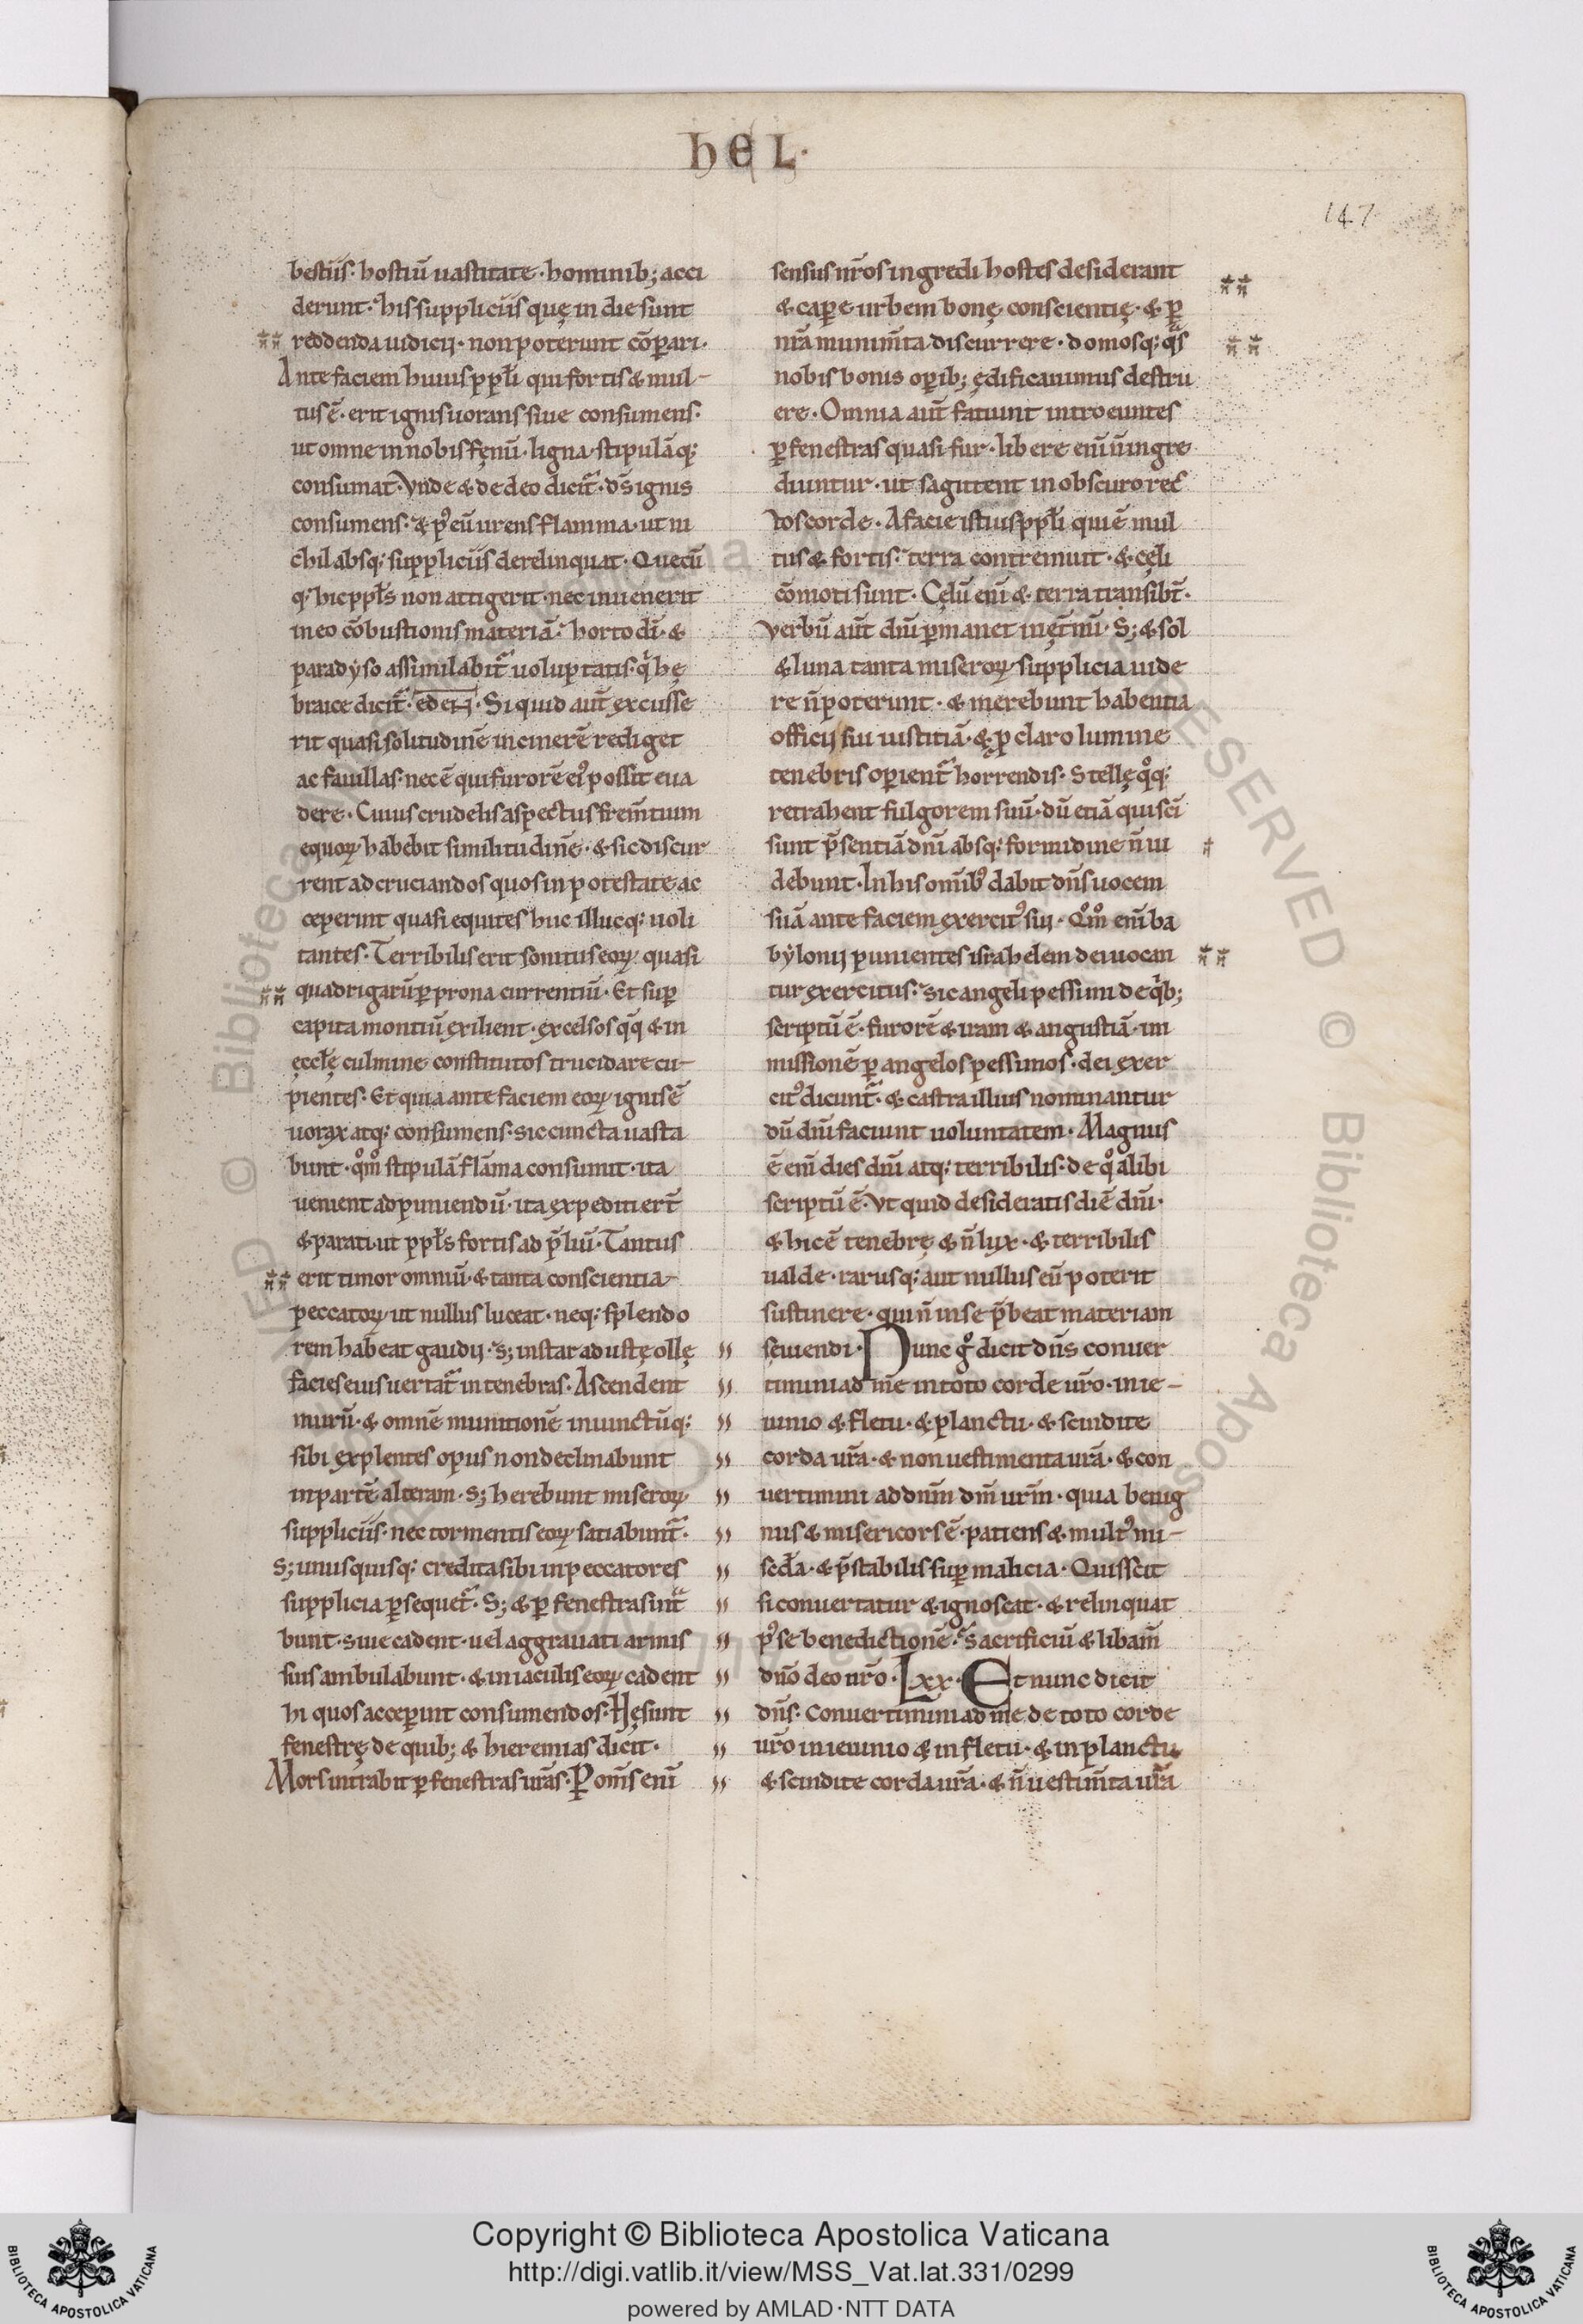 hEL·
147
bestiis· hostiū uastitate· hominib; acci
derunt· his suppliciis quę in die sunt
reddenda iudicij· non poterunt cōꝑari·
Ante faciem huius ppl̄i qui fortis & mul-
tus ē· erit ignis uorans siue consumens·
ut omne in nobis fęnū· ligna· stipulāq;
consumat· Vnde & de deo dicit᷑· ds̄ ignis
consumens· & pꝰ eū urens flamma· ut ni
chil absq; suppliciis derelinquat· Quecū
q; hic ppl̄s non attigerit· nec inuenerit
in eo cōbustionis materiā· horto dī· &
paradyso assimilabit᷑ uoluptatis· q̇ hę
braice dicit᷑· eden· Si quid aut̄ excusse
rit quasi solitudinē in cinerē rediget
ac fauillas· nec ē qui furorē eiꝰ possit eua
dere· Cuius crudelis aspectus frem̄tium
equoꝝ habebit similitudinē· & sic discur
rent ad cruciandos quos in potestate ac
ceperint quasi equites huc illucq; uoli
tantes· Terribilis erit sonitus eoꝝ quasi
quadrigarū ꝑ prona currentiū· Et suꝑ
capita montiū exilient· excelsos q̄q̄ & in
ęccl̄ę culmine constitutos trucidare cu-
pientes· Et quia ante faciem eoꝝ ignis ē
uorax atq; consumens· sic cuncta uasta
bunt· qm̊ stipulā flāma consumit· ita
uenient ad puniendū· ita expediti er̄t
& parati· ut ppl̄s fortis ad p̄liū· Tantus
erit timor omniū· & tanta conscientia-
peccatoꝝ· ut nullus luceat· neq; splendo
rem habeat gaudij· S; instar adustę ollę
facies eius uertat᷑ in tenebras· Ascendent
murū· & omnē munitionē inuinctūq;
sibi explentes opus non declinabunt
in partē alteram· S; herebunt miseroꝝ
suppliciis· nec tormentis eoꝝ satiabunt᷑·
S; unusquisq; credita sibi in peccatores
supplicia ꝑsequet᷑· S; & ꝑ fenestras int̄
bunt· siue cadent· uel aggrauati armis
suis ambulabunt· & in iaculis eoꝝ cadent
hi quos acceꝑint consumendos· Hę sunt
fenestrę de quib; & hieremias dicit·
Mors intrabit ꝑ fenestras ur̄as· Ꝑ om̄s enī
sensus nr̄os ingredi hostes desiderant
& caꝑe urbem bonę conscientię· & ꝑ
nr̄a munim̄ta discurrere· domosq; q̄s
nobis bonis oꝑib; ędificauimus destru
ere· Omnia aut̄ fatiunt introeuntes
ꝑ fenestras quasi fur· libere enī n̄ ingre
diuntur· ut sagittent in obscuro rec̄
tos corde· A facie istius ppl̄i qui ē mul
tus & fortis· terra contremuit· & cęli
cōmoti sunt· Cęlū enī & terra transibt̄·
Verbū aut̄ dn̄i ꝑmanet in ęt̄nū· S; & sol
& luna tanta miseroꝝ supplicia uide
re n̄ poterunt· & merebunt habentia
officij sui iustitiā· & ꝓ claro lumine
tenebris oꝑient᷑ horrendis· Stellę q̊q;
retrahent fulgorem suū· dū etiā qui sc̄i
sunt p̄sentiā dn̄i absq; formidine n̄ ui
debunt· In his om̄ibꝰ dabit dn̄s uocem
suā ante faciem exercitꝰ sui· Qm̊ enī ba
bylonij punientes israhelem dei uocan
tur exercitus· sic angeli pessimi de q̇b;
scriptū ē· furorē & iram & angustiā· im
missionē ꝑ angelos pessimos· dei exer
citꝰ dicunt᷑· & castra illius nominantur
dū dn̄i faciunt uoluntatem· Magnus
ē enī dies dn̄i atq; terribilis· de q̊ alibi
scriptū ē· Vt quid desideratis diē dn̄i·
& hic ē tenebrę & n̄ lux· & terribilis
ualde· rarusq; aut nullus eū poterit
sustinere· qui n̄ in se p̄beat materiam
sęuiendi· Nunc g̊ dicit dn̄s conuer
timini ad me in toto corde ur̄o· in ie-
iunio & fletu· & planctu· & scindite
corda ur̄a· & non uestimenta ur̄a· & con
uertimini ad dn̄m dm̄ ur̄m· quia benig
nus & misericors ē· patiens & multꝰ mi-
sc̄da· & p̄stabilis suꝑ malicia· Quis scit
si conuertatur & ignoscat· & relinquat
pꝰ se benedictionē· Sacrificiū & libam̄
dn̄o deo nr̄o· Lxx· Et nunc dicit
dn̄s· Conuertimini ad me de toto corde
ur̄o in ieiunio & in fletu· & in planctu
& scindite corda ur̄a· & n̄ uestim̄ta ur̄a
Copyright © Biblioteca Apostolica Vaticana
http://digi.vatlib.it/view/MSS_Vat.lat.331/0299
powered by AMLAD·NTT DATA